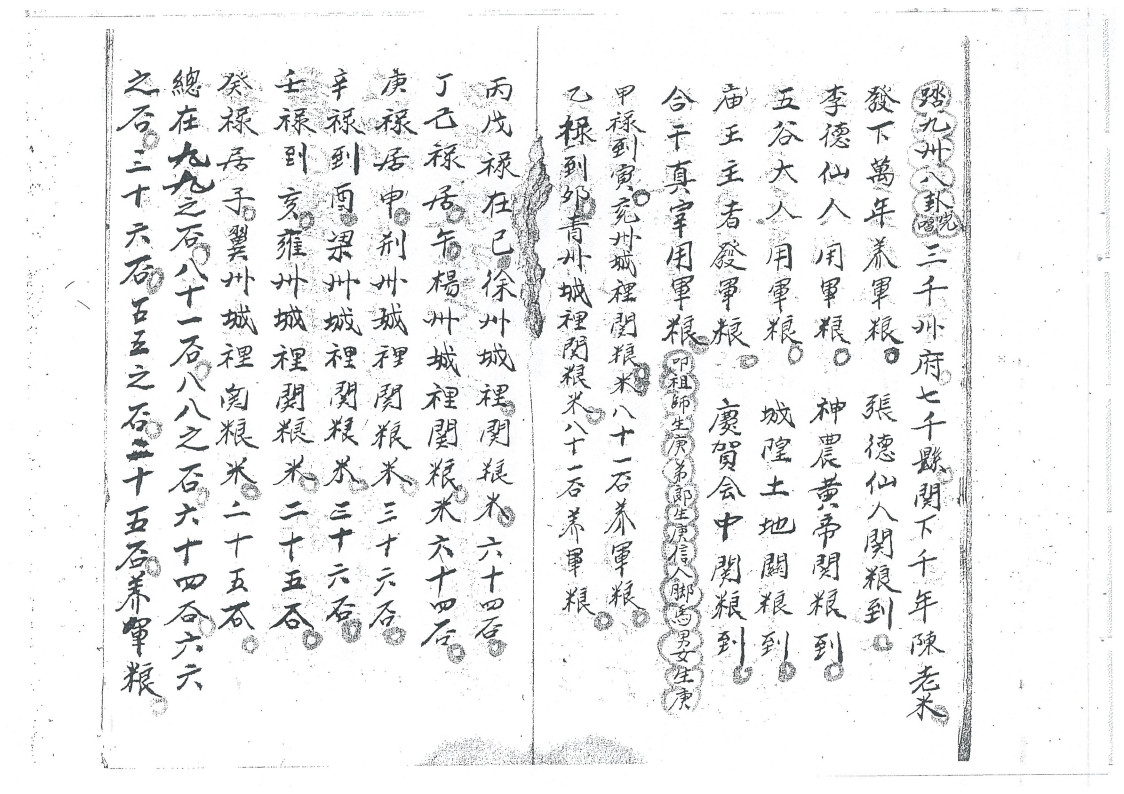 踏九州八卦咒唱三千州府七千縣関下千年陳老米
發下萬年养軍粮 張德仙人関粮到
李德仙人用軍粮 神農黄帝関粮到
五谷大人用軍粮 城隍土地関粮到
庙王主者發軍粮 慶賀会中関粮到
合干真宰用軍粮叩祖師生庚弟郎生庚信人脚馬男女生庚
甲禄到寅兖州城裡関粮米八十一石养軍粮
乙禄到卯青州城裡関粮米八十一石养軍粮
丙戊禄在巳徐州城裡関粮米六十四石
丁己禄居午楊州城裡関粮米六十四石
庚禄居申荆州城裡関粮米三十六石
辛禄到酉梁州城裡関粮米三十六石
壬禄到亥雍州城裡関粮米二十五石
癸禄居子翼州城裡関粮米二十五石
總在九九之石八十一石八八之石六十四石六六
之石三十六石五五之石二十五石养軍粮